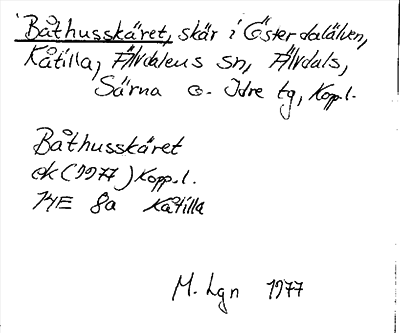 Båthusskäret, skär i Österdalälven,
Kåtilla, Älvdalens sn, Älvdals,
Särna o. Idre tg, Kopp. l.
Båthusskäret
ek (1977) Kopp. l.
14E 8a Kåtilla
M. Lgn 1977